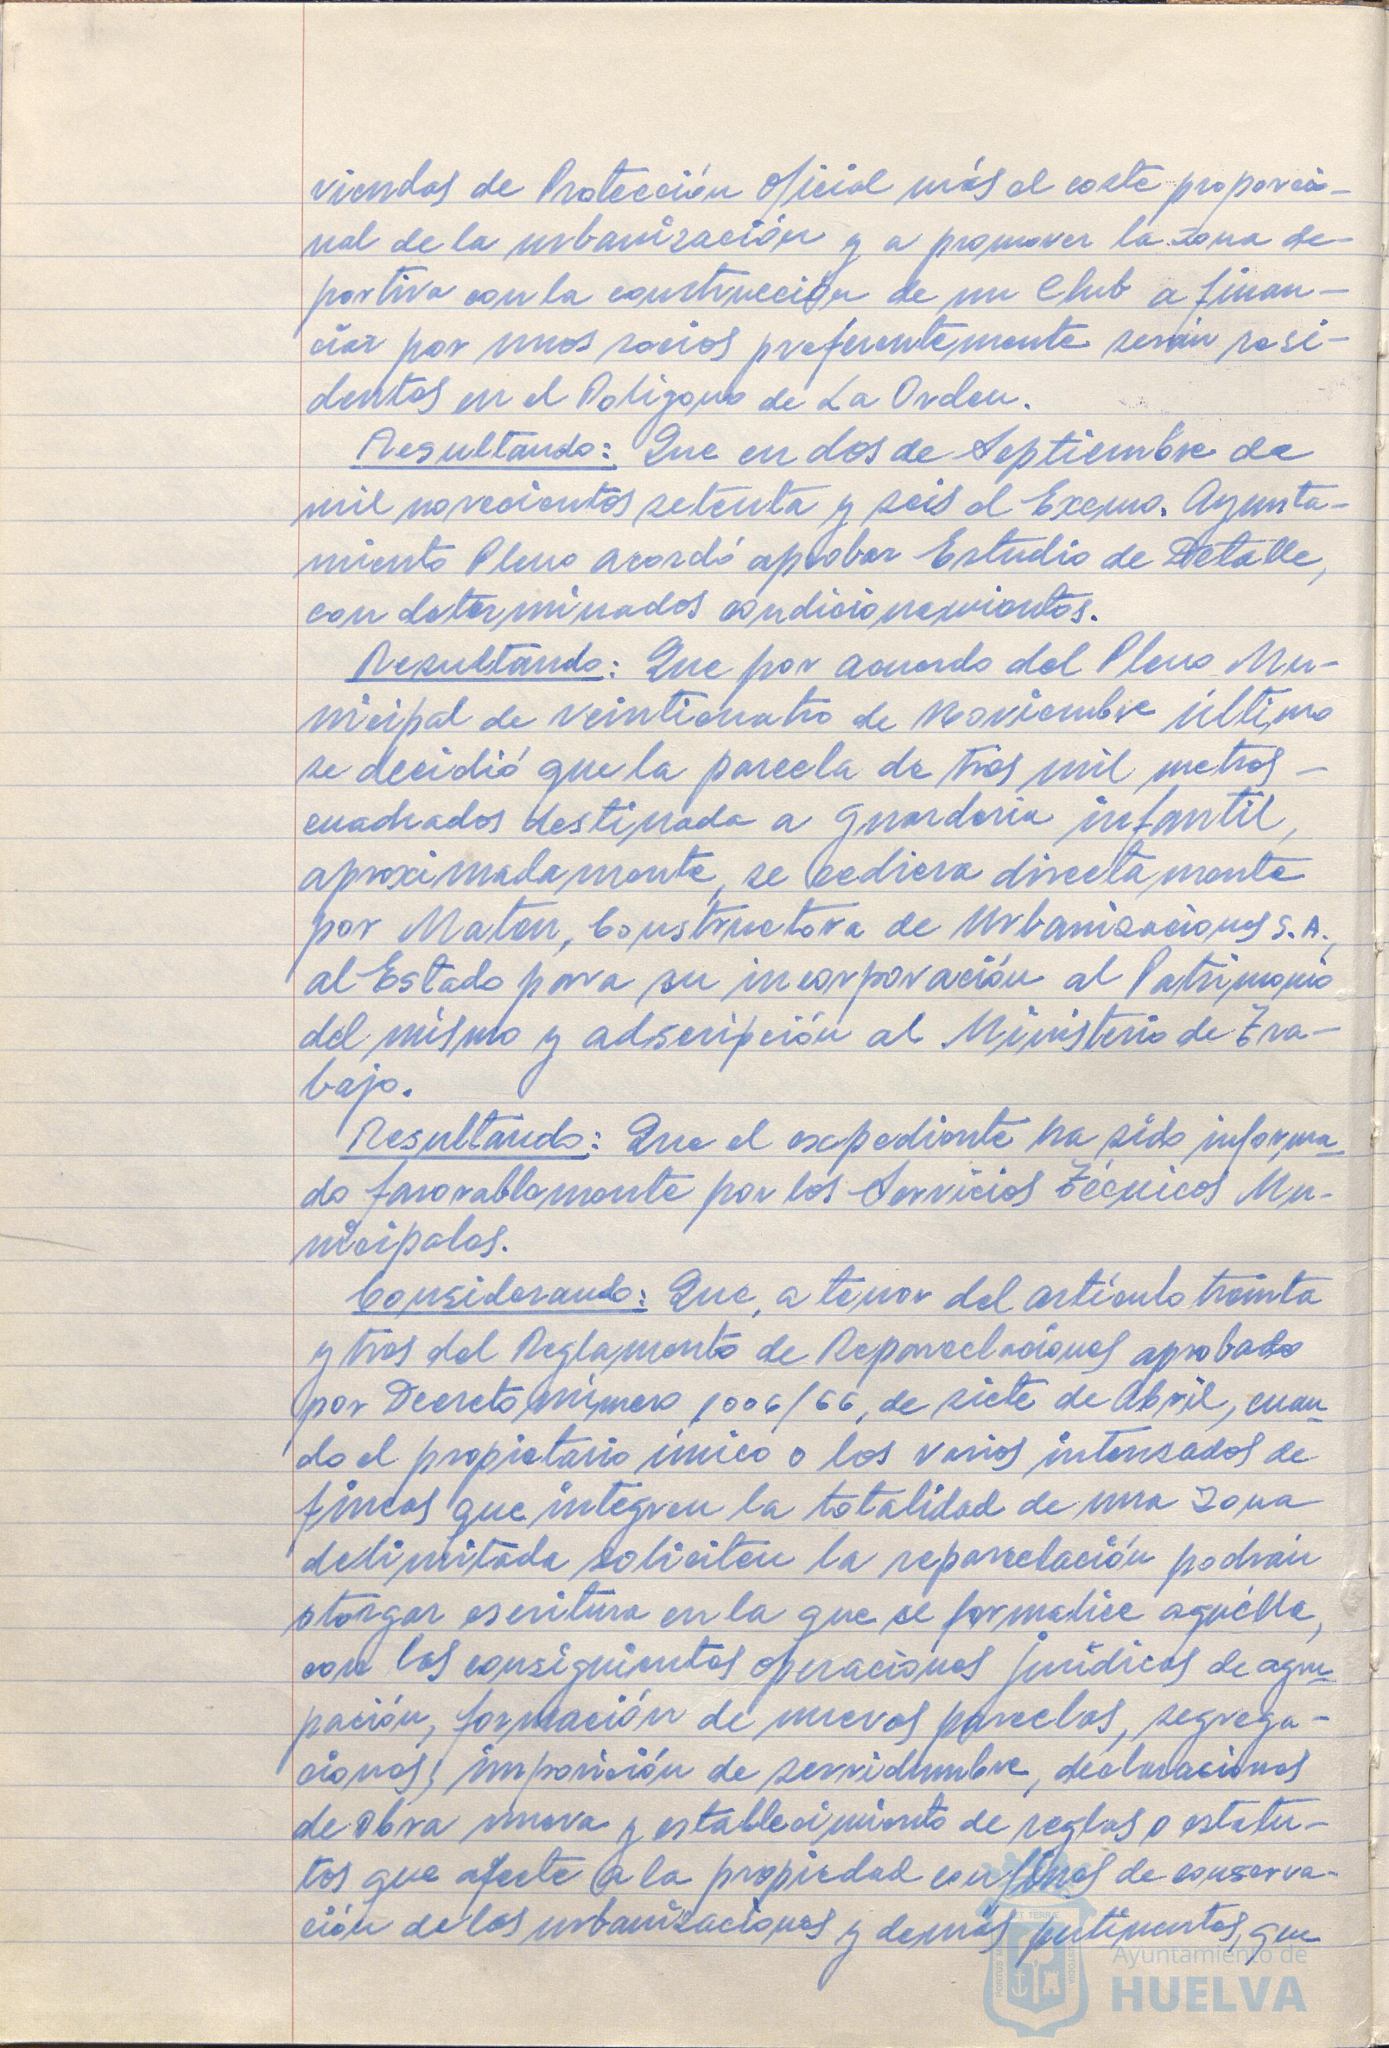 viendas de Protección Oficial más el coste proporcio-
nal de la urbanización y a promover la zona de-
portiva con la construcción de un Club a finan-
ciar por unos socios preferentemente serán resi-
dentes en el Polígono de La Orden.
Resultando: Que en dos de Septiembre de
mil novecientos setenta y seis el Excmo. Ayunta-
miento Pleno acordó aprobar Estudio de Detalle,
con determinados condicionamientos.
Resultando: Que por acuerdo del Pleno Mu-
nicipal de veinticuatro de Noviembre último
se decidió que la parcela de tres mil metros -
cuadrados destinada a Guardería infantil,
aproximadamente, se cediera directamente
por Maten, Constructora de Urbanizaciones S.A.,
al Estado para su incorporación al Patrimonio
del mismo y adscripción al Ministerio de Tra-
bajo.
Resultando: Que el expediente ha sido informa-
do favorablemente por los Servicios Técnicos Mu-
nicipales.
Considerando: Que, a tenor del artículo treinta
y tres del Reglamento de Reparcelaciones aprobado
por Decreto número 1006/66, de siete de Abril, cuan-
do el propietario único o los varios interesados de
fincas que integren la totalidad de una zona
delimitada soliciten la reparcelación podrán
otorgar escritura en la que se formalice aquélla,
con las consiguientes operaciones jurídicas de agru-
pación, formación de nuevas parcelas, segrega-
ciones, imposición de servidumbre, declaraciones
de obra nueva y establecimiento de reglas o estatu-
tos que afecte a la propiedad con fines de conserva-
ción de las urbanizaciones y demás pertinentes, que
Ayuntamiento de
HUELVA